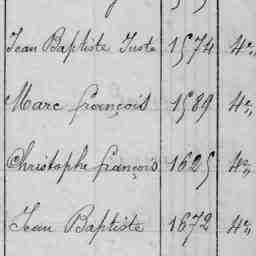 Jean Baptiste Juste 1574 4e,,
Marc françois 1589 4e,,
Christophe françois 1625 4e,,
Jean Baptiste 1672 4e,,